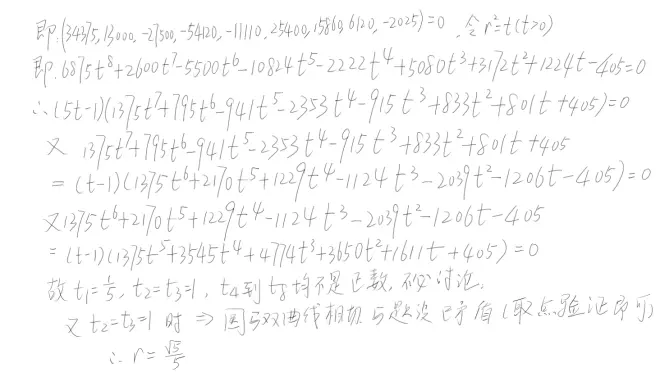 即:(34375,13000,-27500,-54120,-11110,25400,15860,6120,-2025)=0,令r²=t(t>0)
即:6875t⁸+2600t⁷-5500t⁶-10824t⁵-2222t⁴+5080t³+3172t²+1224t-405=0
∴(5t-1)(1375t⁷+795t⁶-941t⁵-2353t⁴-915t³+833t²+801t+405)=0
又 1375t⁷+795t⁶-941t⁵-2353t⁴-915t³+833t²+801t+405
=(t-1)(1375t⁶+2170t⁵+1229t⁴-1124t³-2039t²-1206t-405)=0
又1375t⁶+2170t⁵+1229t⁴-1124t³-2039t²-1206t-405
=(t-1)(1375t⁵+3545t⁴+4774t³+3650t²+1611t+405)=0
故t₁=1/5,t₂=t₃=1,t₄到t₈均不是正数,不必讨论.
又t₂=t₃=1时⇒圆与双曲线相切与题设已矛盾(取点验证即可)
∴r=√5/5